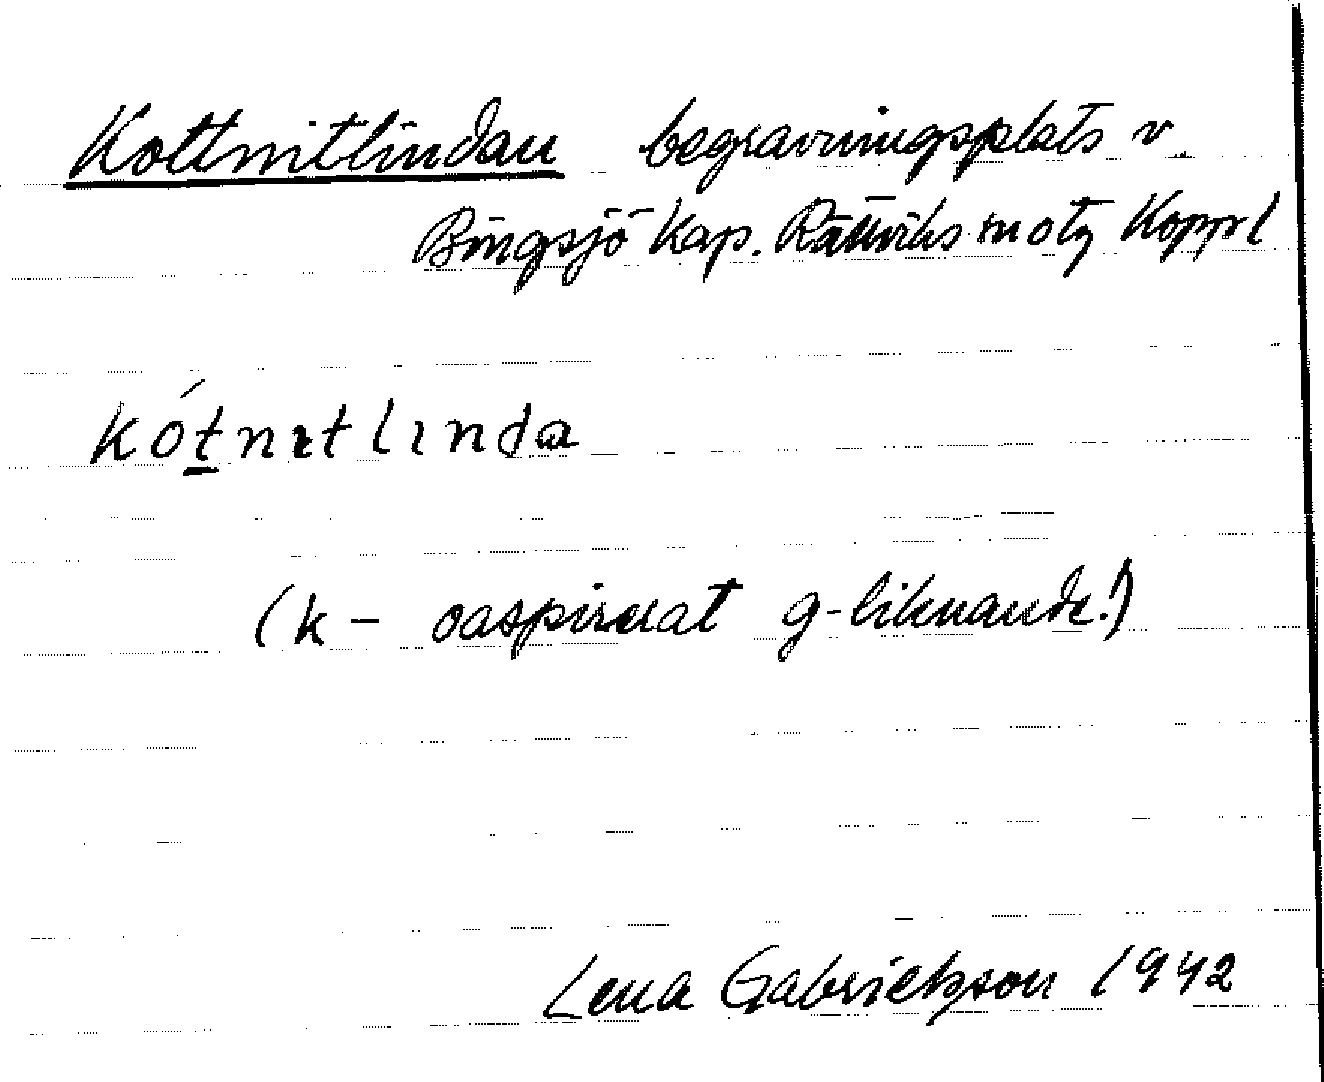 Kottnitlindan begravningsplats v.
Bingsjö Kap. Rättviks sn o tg Koppl
kótnɪtlɪnda
(k – oaspirerat g-liknande!)
Lena Gabrielsson 1942